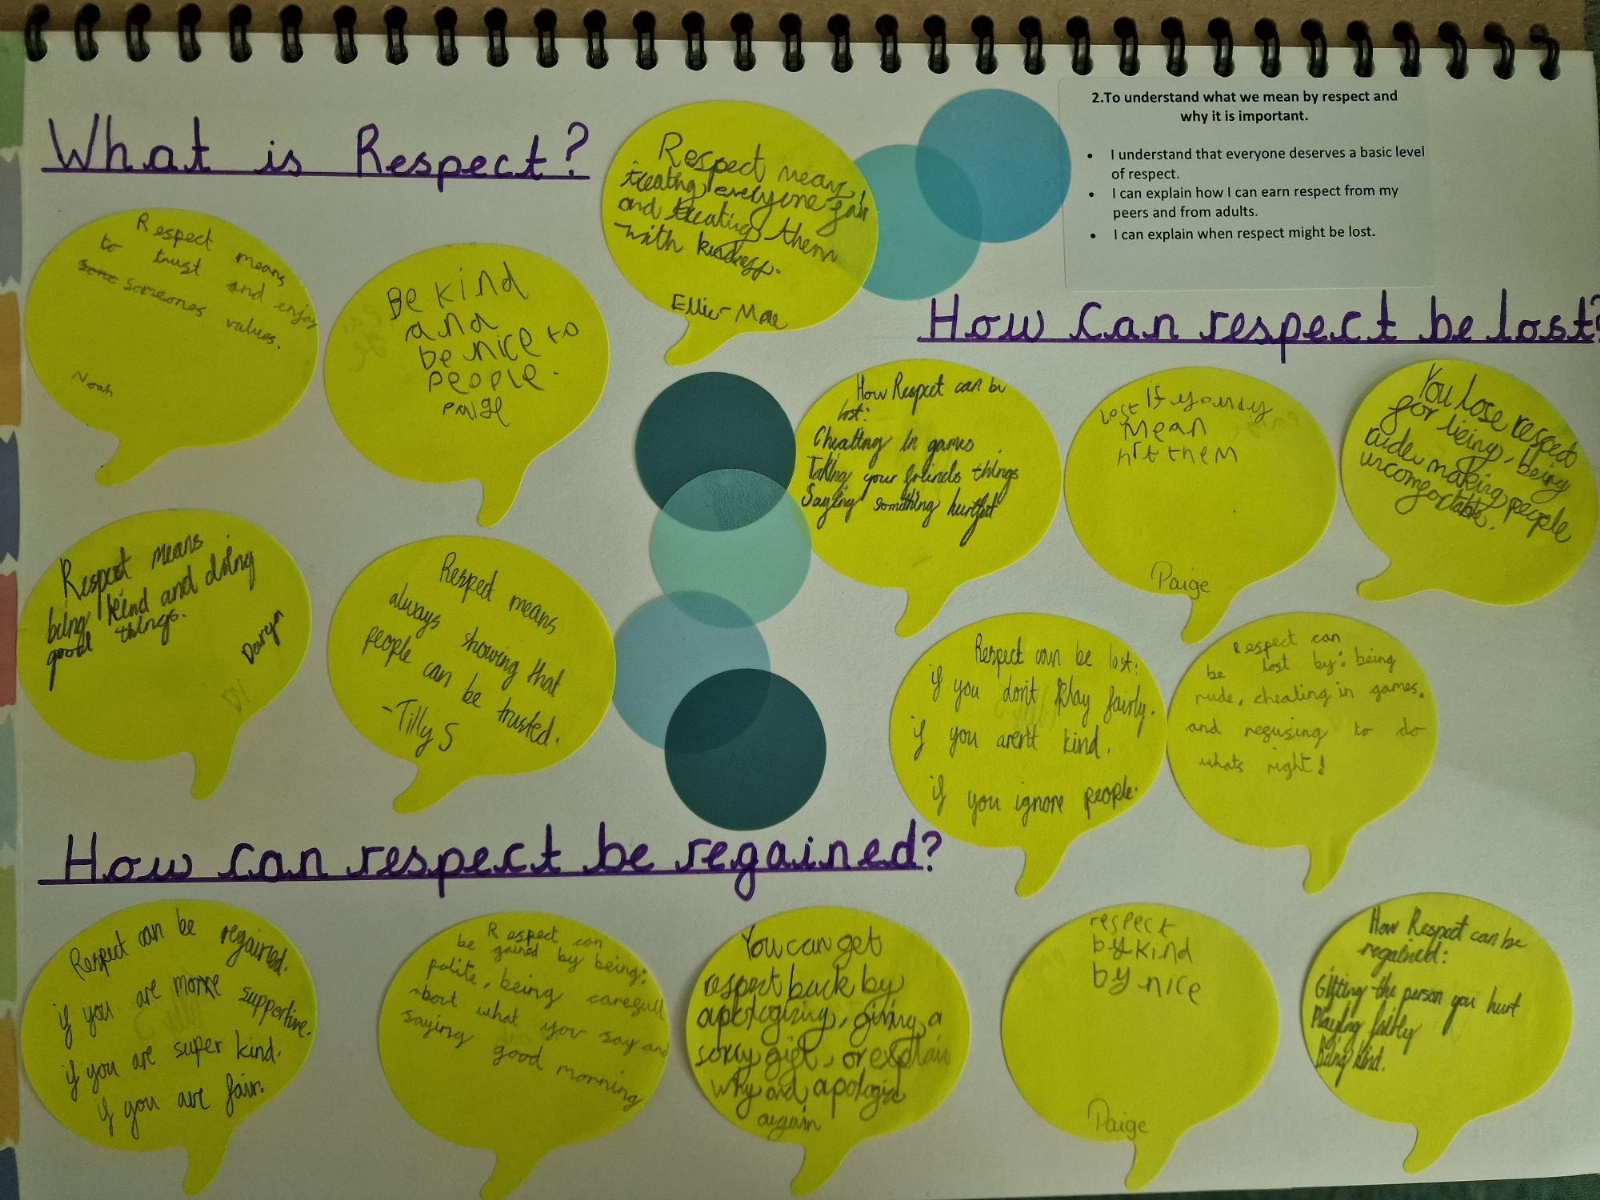 What is Respect?
Respect means
treating everyone fair
and treating them
with kindness.
Ellie-Mae
2.To understand what we mean by respect and
why it is important.
• I understand that everyone deserves a basic level
of respect.
• I can explain how I can earn respect from my
peers and from adults.
• I can explain when respect might be lost.
Respect means
to trust and enjoy
someones values.
Noah
Be kind
and
be nice to
people.
paige
Respect means
being kind and doing
good things.
Respect means
always showing that
people can be trusted.
-Tilly S
How can respect be lost?
How Respect can be
lost:
Cheating in games
Taking your friends things
Saying something hurtful
lost If you
mean
hit them
Paige
You lose respect
for being, being
rude, making people
uncomfortable.
Respect can be lost:
if you don't play fairly.
if you aren't kind.
if you ignore people.
Respect can
be lost by: being
rude, cheating in games,
and regusing to do
whats right!
How can respect be regained?
Respect can be regained.
if you are more supportive.
if you are super kind.
if you are fair.
Respect can
be gained by being:
polite, being caregull
about what you say and
saying good morning
You can get
respect back by
apologizing, giving a
sorry gift, or explain
why and apologize
again
respect
by kind
by nice
Paige
How Respect can be
regained:
Gifting the person you hurt
Playing fairly
Being kind.